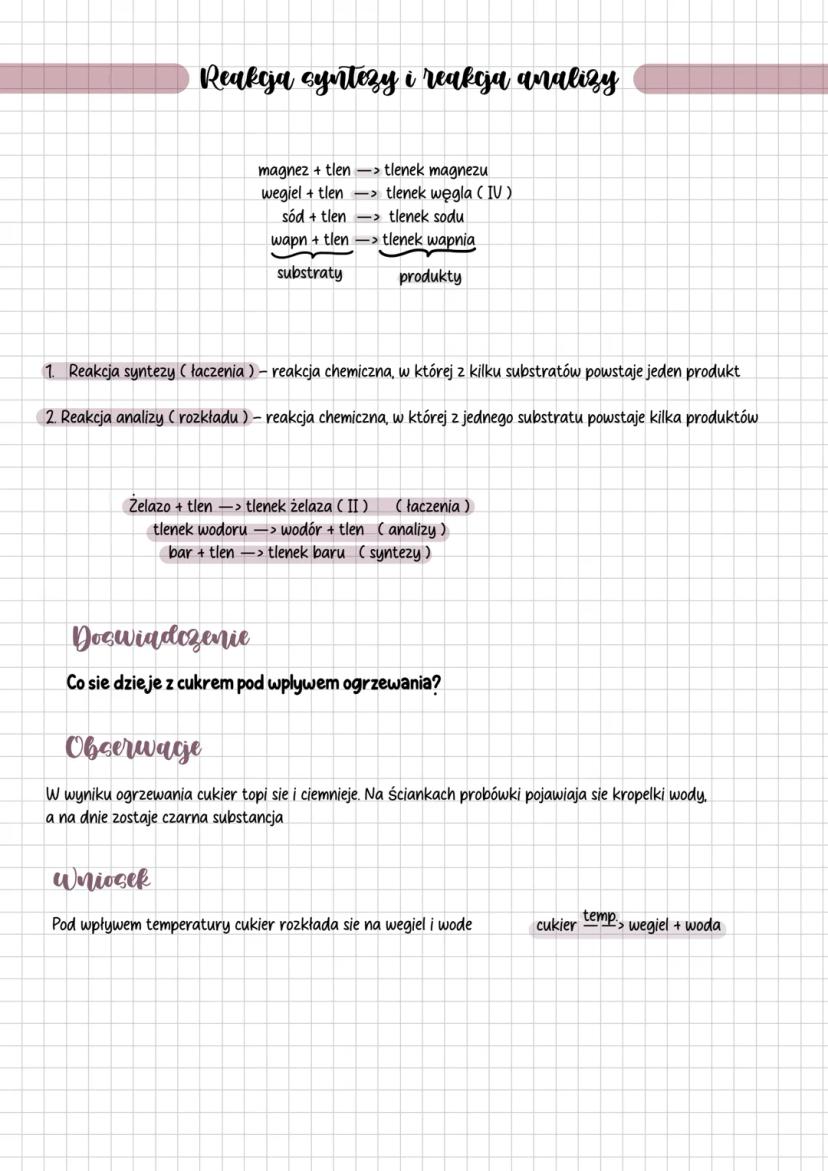 Reakcja syntezy i reakcja analizy
magnez + tlen —> tlenek magnezu
wegiel + tlen —> tlenek węgla ( IV )
sód + tlen —> tlenek sodu
wapn + tlen —> tlenek wapnia
substraty produkty
1. Reakcja syntezy ( łaczenia ) – reakcja chemiczna, w której z kilku substratów powstaje jeden produkt
2. Reakcja analizy ( rozkładu ) – reakcja chemiczna, w której z jednego substratu powstaje kilka produktów
Żelazo + tlen —> tlenek żelaza ( II ) ( łaczenia )
tlenek wodoru —> wodór + tlen ( analizy )
bar + tlen —> tlenek baru ( syntezy )
Doswiadczenie
Co sie dzieje z cukrem pod wplywem ogrzewania?
Obserwacje
W wyniku ogrzewania cukier topi sie i ciemnieje. Na ściankach probówki pojawiaja sie kropelki wody,
a na dnie zostaje czarna substancja
Wniosek
Pod wpływem temperatury cukier rozkłada sie na wegiel i wode
temp.
cukier — —> wegiel + woda